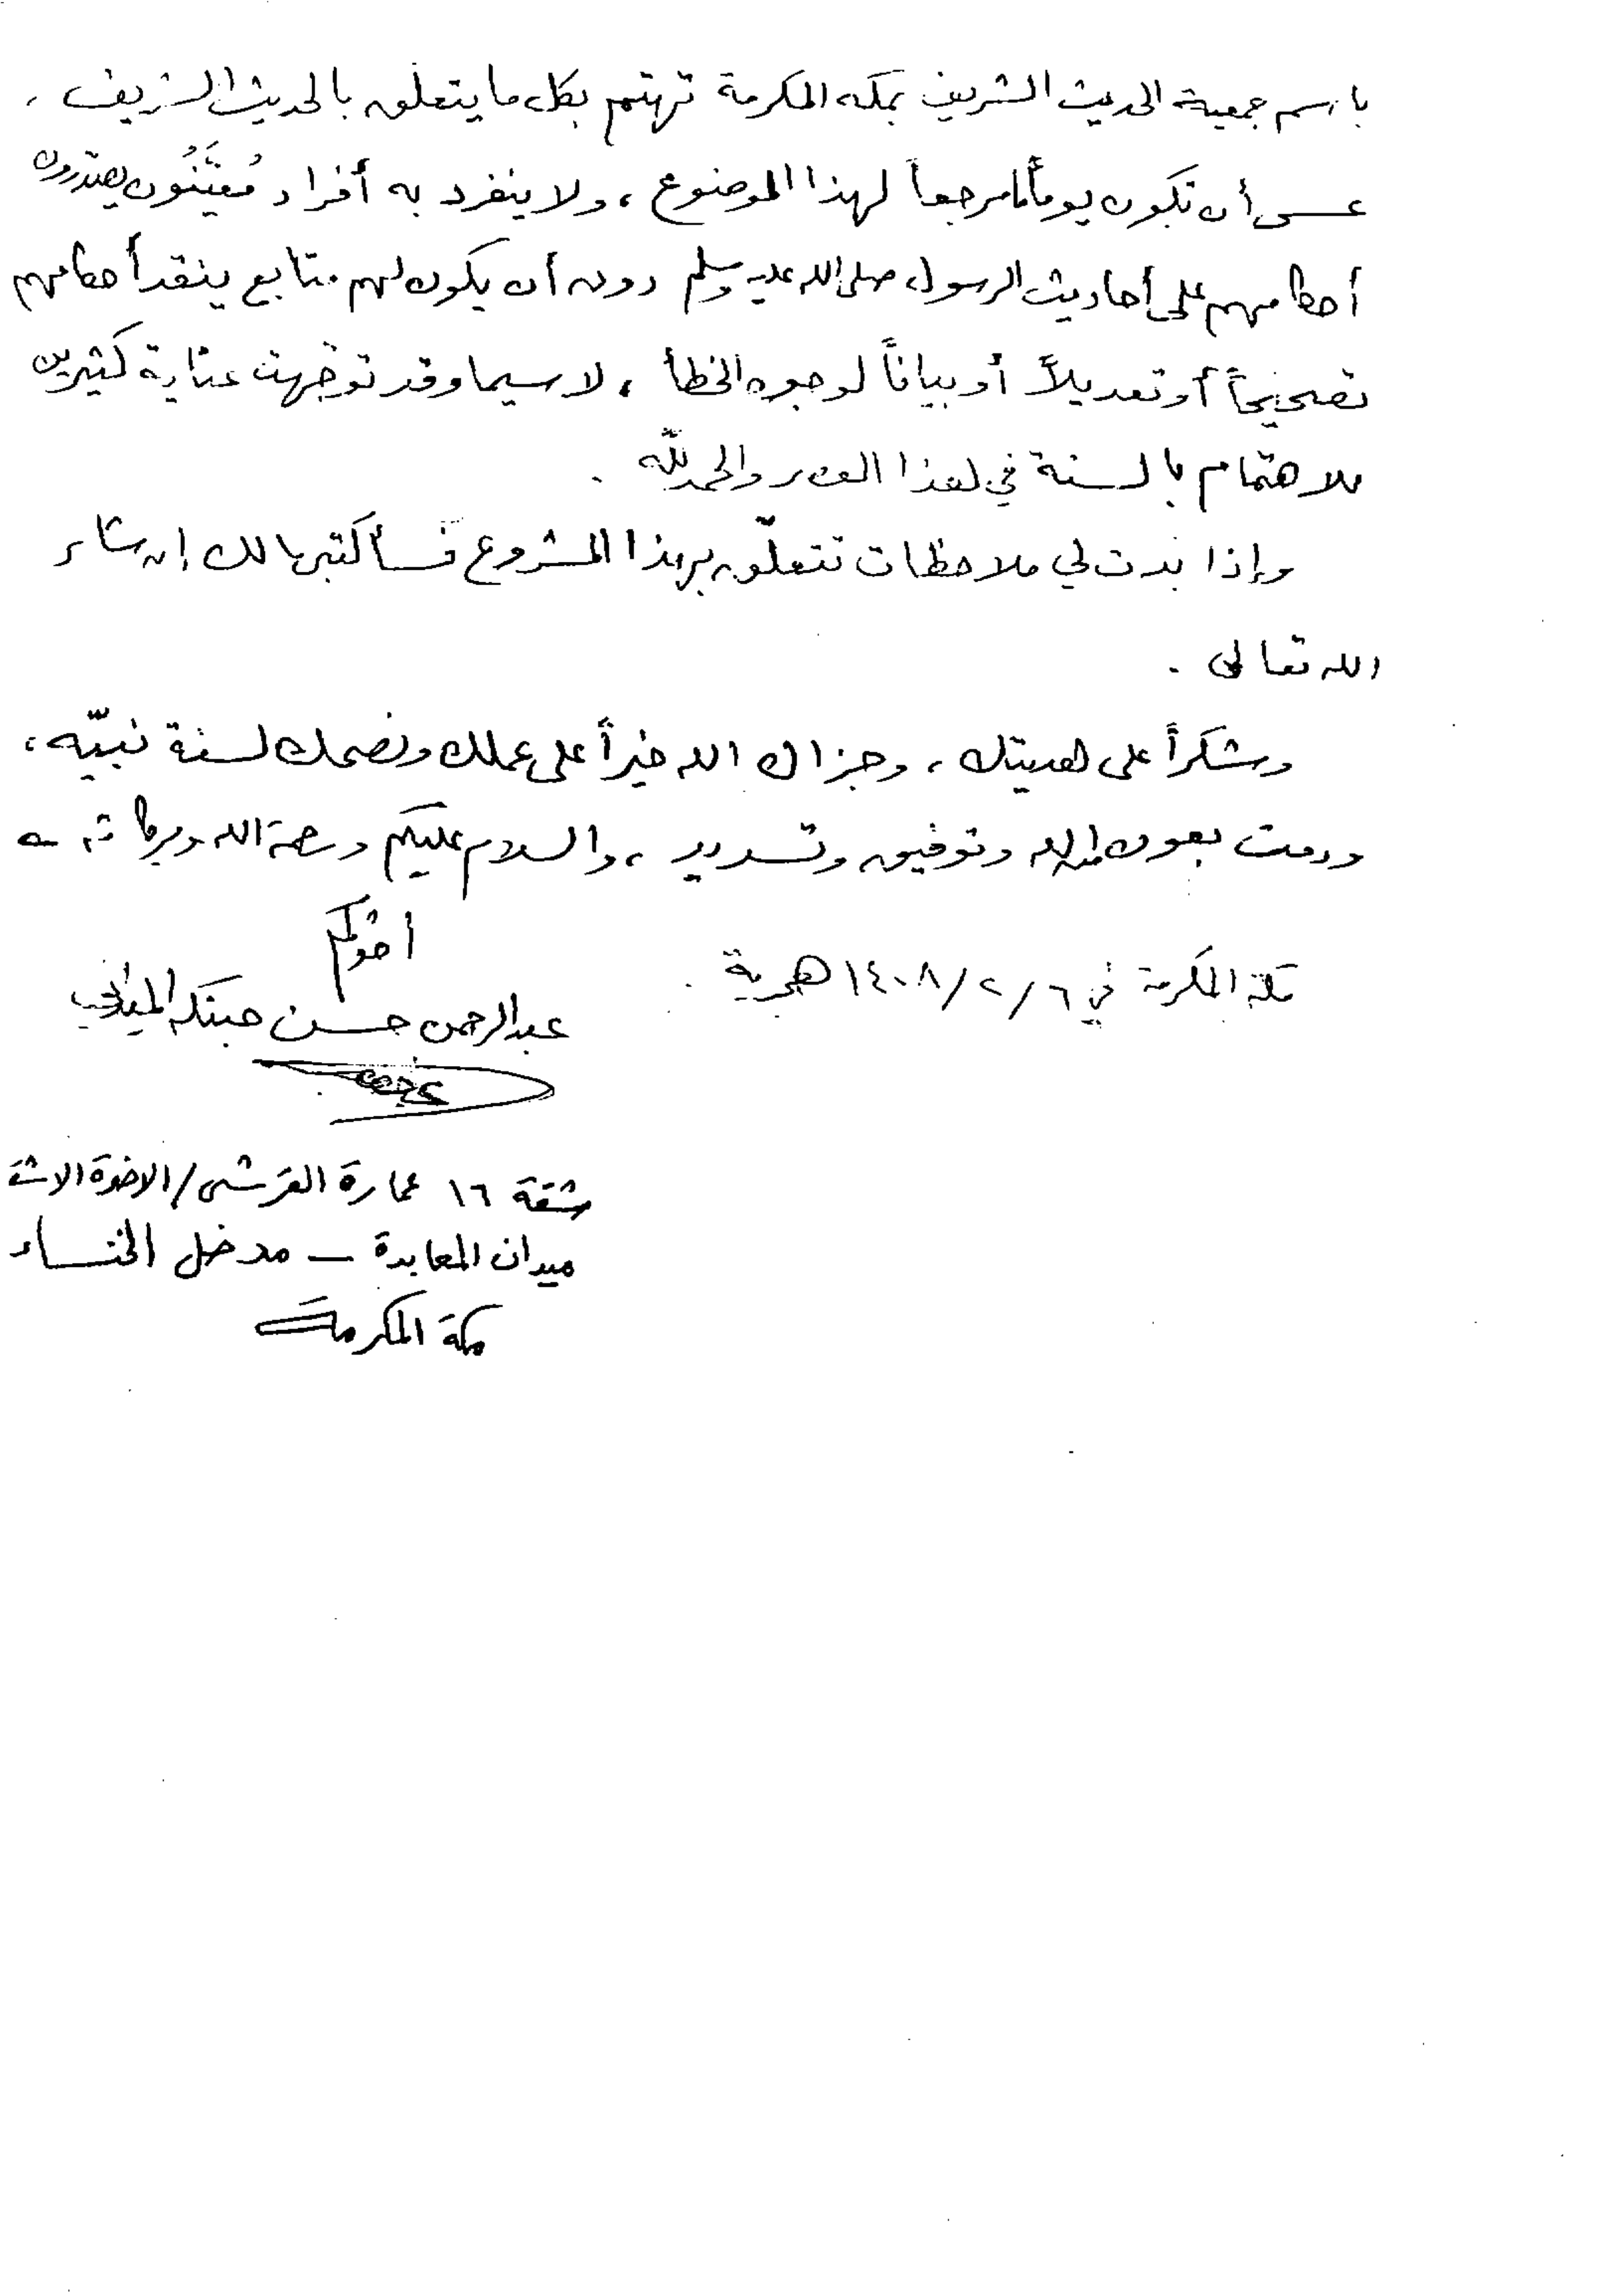 باسم جمعية الحديث الشريف بمكة المكرمة تهتم بكل ما يتعلق بالحديث الشريف ،
عسى أن تكون يوماً ما مرجعاً لهذا الموضوع ، ولا ينفرد به أفراد مُعَيَّنُون يصدرون
أحكامهم على أحاديث الرسول صلى الله عليه وسلم دون أن يكون لهم متابع ينقد أحكامهم
تصحيحاً أو تعديلاً أو بياناً لوجوه الخطأ ، لا سيما وقد توجهت عناية كثيرين
للاهتمام بالسنة في هذا العصر والحمد لله .
وإذا بدت لي ملاحظات تتعلّق بهذا المشروع فسأكتبها لك إن شاء
الله تعالى .
وشكراً على هديتك ، وجزاك الله خيراً على عملك ونصحك لسنة نبيّه ،
ودمت بعون الله وتوفيق وتسديد ، والسلام عليكم ورحمة الله وبركاته
أخوكم
مكة المكرمة في ٦ / ٢ / ١٤٠٨ هجرية .
عبد الرحمن حسن حبنكه الميداني
شقة ١٦ عمارة القرشي / الاخوة
ميدان المعابدة - مدخل الخنساء
مكة المكرمة